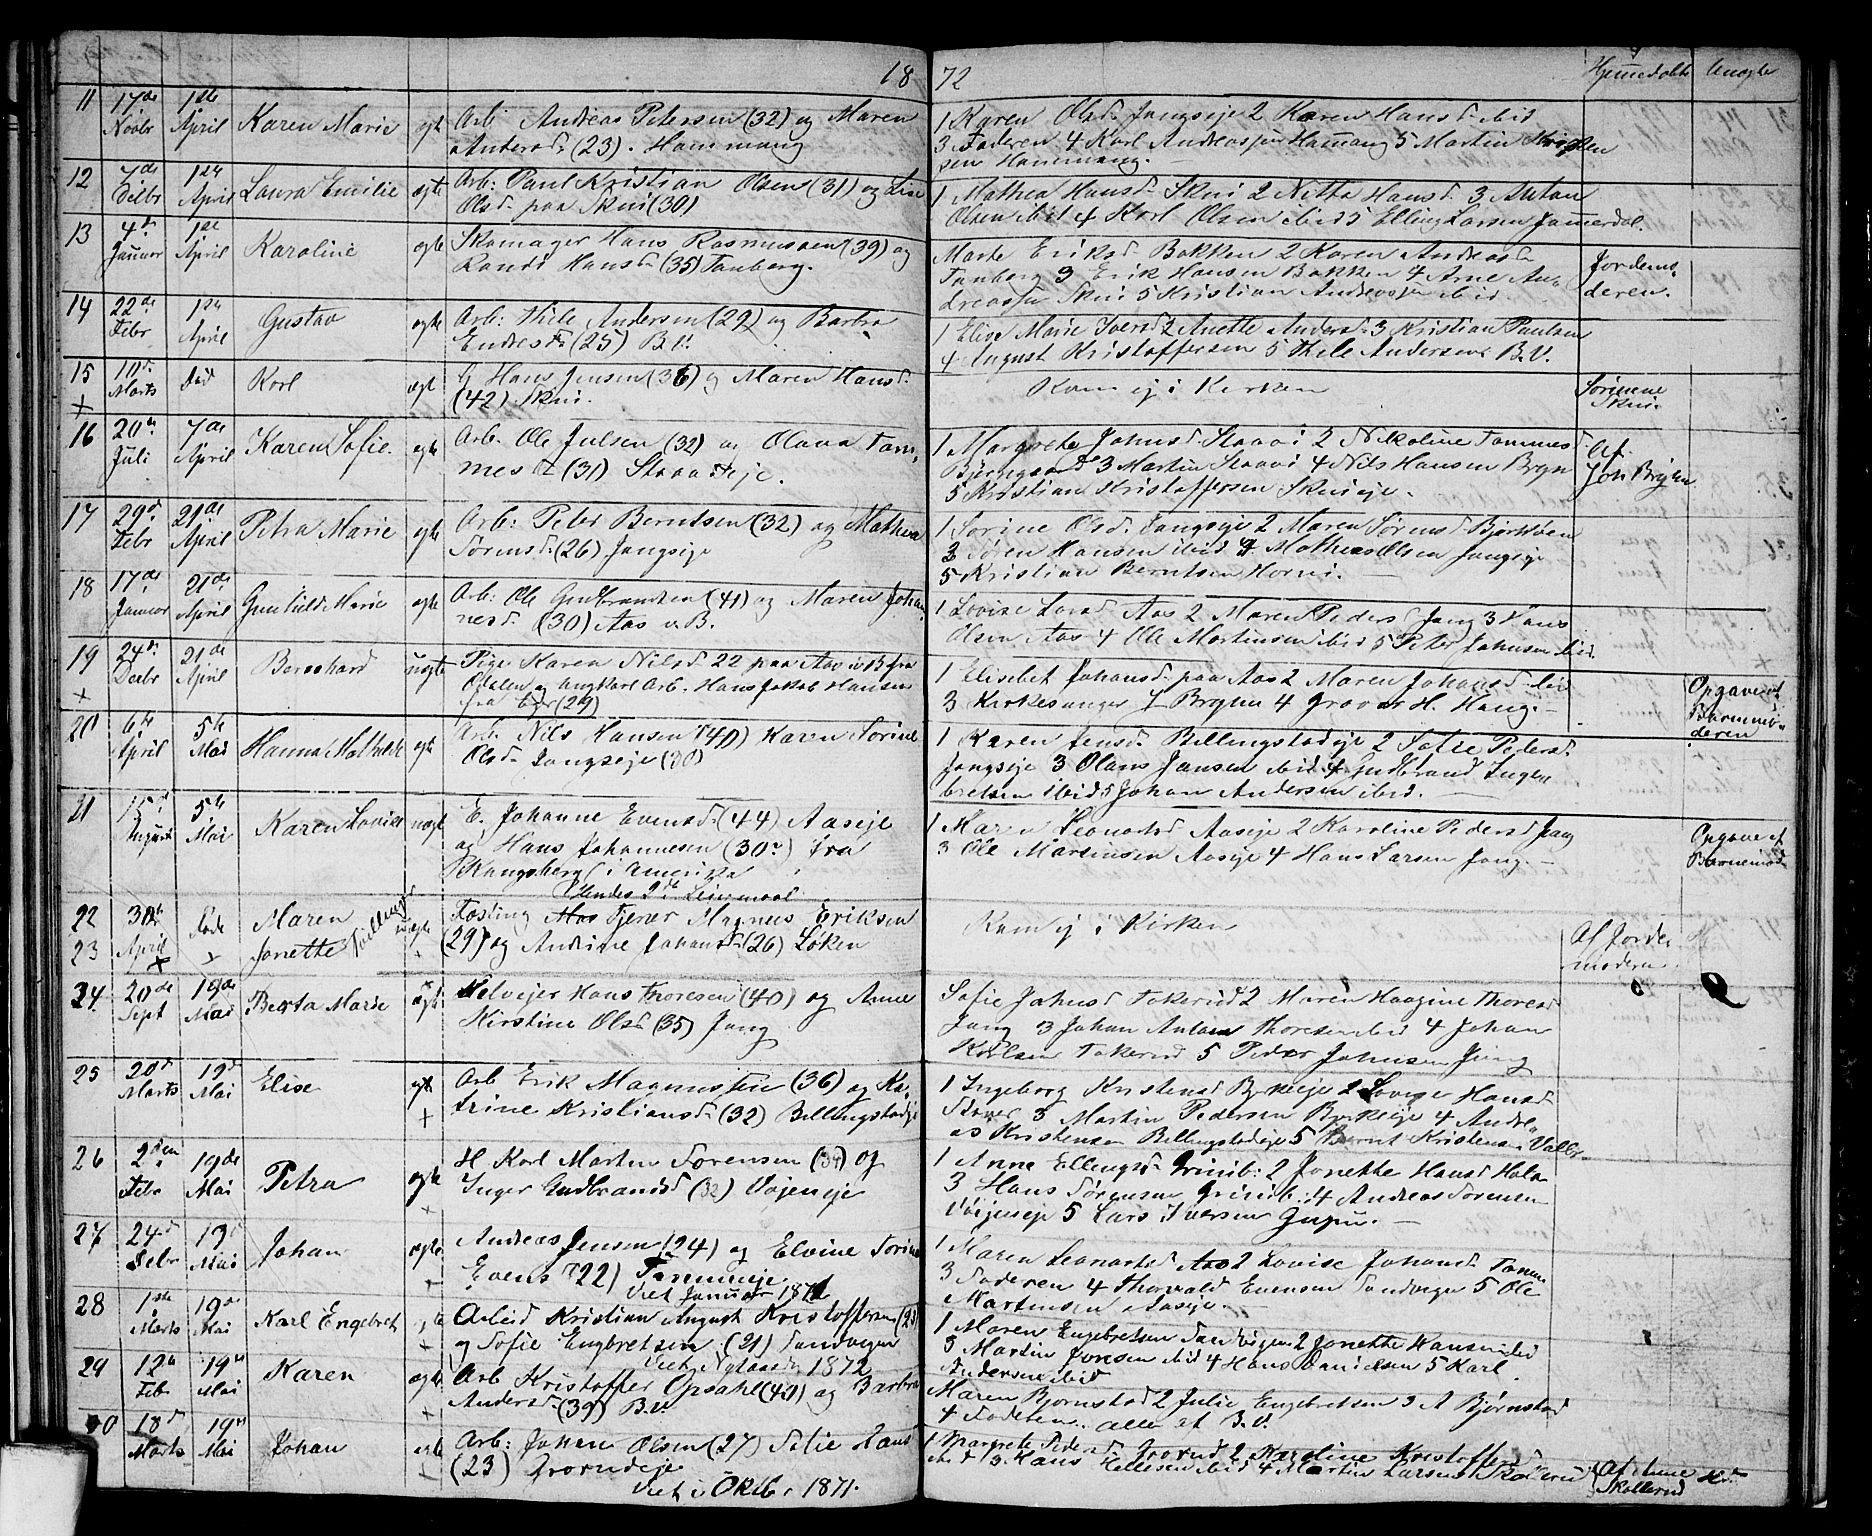 18 72
Hjemmedøbte Uægte
11 17de Novbr 1ste April Karen Marie ægte Arb. Andreas Petersen (32) og Maren
Andersd. (23). Hammang
1 Karen Olsd. Jongseje 2 Karen Hansd. ibid
3 Faderen 4 Karl Andreassen Hamang 5 Martin Kristen
sen Hammang.
12 7de 1ste April Laura Emilie ægte Arb: Paul Kristian Olsen (31) og Lise
Olsd. paa Skui (30)
1 Mathea Hansd. Skui 2 Nitta Hansd. 3 Anton
Olsen ibid 4 Karl Olsen ibid 5 Elling Larsen Jammerdal.
13 4de Januar 1ste April Karoline ægte Skomager Hans Rasmussen (39) og
Randi Hansd. (35) Tanberg.
Marte Eriksd. Bakken 2 Karen Andreasd.
Tanberg 3 Erik Hansen Bakken 4 Arne An-
dreassen Skui 5 Kristian Andreassen ibid.
Jordemo-
deren.
14 22de Febr 1ste April Gustav ægte Arb: Thile Andersen (29) og Barbra
Endresd. (25) B.V.
1 Elise Marie Iversd 2 Anette Andersd. 3 Kristian Paulsen
4 August Kristoffersen 5 Thile Andersens B.V.
15 Marts død Karl ægte G. Hans Jensen (36) og Maren Hansd.
(42) Skui.
Kom ej i Kirken
Skui.
16 20de Juli 7de April Karen Sofie. ægte Arb. Ole Julsen (32) og Olava Tom-
mesd. (31) Staaviseje.
1 Margrete Johnsd. Staavi 2 Nikoline Tommesd.
Bjerngaard 3 Martin Staavi 4 Nils Hansen Bryn
5 Kristian Kristoffersen Skuieje.
Af
Jon Bryhn
17 29de Febr 21de April Petra Marie ægte Arb: Peter Berntsen (32) og Mathea
Sörensd. (26) Jongseje
1 Sorine Olsd. Jongseje 2 Maren Sørensd. Bjerkåsen
3 Søren Hansen ibid 4 Mathias Olsen Jongseje
5 Kristian Berntsen Horni.
18 17de Januar 21de April Gunhild Marie ægte Arb: Ole Gudbrandsen (41) og Maren Johan
nesd. (30) Aas v. B.
1 Lovise Larsd. Aas 2 Maren Peders. Jong 3 Hans
Olsen Aas 4 Ole Martinsen ibid 5 Peter Johnsen ibid.
19 24de Decbr 21de April Bernhard uægte Pige Karen Nilsd. 22 paa Aas i B fra
Odalen og Ungkarl Arb. Hans Jakob Hansen
fra (29)
1 Elisebet Johansd. paa Aas 2 Maren Johansd. ibid
3 Kirkesanger J Bryhn 4 Graver H. Haug.
Opgave af
Barnemo-
deren
20 6te April 5te Mai Hanna Mathilde ægte Arb. Nils Hansen (40) Karen Sorine
Olsd. Jongseje (30)
1 Karen Jensd. Billingstadeje 2 Sofie Pedersd.
Jongseje 3 Olaus Jansen ibid 4 Gudbrand Inge-
bretsen ibid 5 Johan Andersen ibid.
21 15de August 5te Mai Karen Lovise uægte E. Johanne Evensd. (44) Aaseje
og Hans Johannesen (30?) fra
Kongsberg (i Amerika
Hendes 2det Leiermaal
1 Maren Leonartsd Aaseje 2 Karoline Pedersd Jong
3 Ole Martinsen Aaseje 4 Hans Larsen Jong.
Opgave af
Barnemod.
22 30te April Døde Maren Tvillinger uægte Tjener Magnus Eriksen
23 Jonette (29) og Andrine Johansd. (26) Løken
Kom ej i Kirken
Af Jorde
moderen
24. 20de Sept 19de Mai Berta Marie ægte Selvejer Hans Thoresen (40) og Anne
Kirstine Olsd (35) Jong
Sofie Johnsd Tokerud 2 Maren Haagine Thoresd
Jong 3 Johan Anton Thoresen ibid 4 Johan
Karlsen Tokerud 5 Peder Johnsen Jong
25 20de Marts 19de Mai Elise ægte Arb Erik Magnussen (36) og Ka-
trine Kristiansd. (32) Billingstadeje
1 Ingeborg Kristensd Byrkeje 2 Lovise Hansd
Stover 3 Martin Pedersen Byrkeje 4 Andre-
as Kristensen Billingstadeje 5 Bernt Kristensen Valler
26 2den Febr 19de Mai Petra ægte H Karl Martin Sørensen (34) og
Inger Gudbrandsd (32) Vøjeneje
1 Anne Ellingsd. Grinib: 2 Jonette Hansd Holm
3 Hans Sørensen Grinib: 4 Andreas Sørensen
Vøjeneje 5 Lars Iversen
27 24de Febr 19de Mai Johan ægte Andreas Jensen (24) og Elvine Sorine
Evens (22) Tanumeje
Viet Januar 1871
1 Maren Leonartsd Aas 2 Lovise Johansd Tanum
3 Faderen 4 Thorvald Evensen Sandvigen 5 Ole
Martinsen Aaseje.
28 1ste Marts 19de Mai Karl Engebret ægte Arbeid Kristian August Kristoffersen (23)
og Sofie Engbretsen (21) Sandvigen
Viet Nytaarsd. 1872
1 Maren Engebretsen Sandvigen 2 Jonette Hansen ibid
3 Martin Jonsen ibid 4 Hans Danielsen 5 Karl
Andersen ibid
29 12te Febr 19de Mai Karen ægte Arb Kristoffer Opsahl (40) og Barbra
Andersd. (39) B.V.
Maren Bjørnstad 2 Julie Engebretsen 3 A Bjørnstad
4 Faderen. alle af B.V.
30 18de Marts 19de Mai Johan ægte Arb: Johan Olsen (27) Sofie Hansd
(23) Grorudeje
Viet i Oktb. 1871.
1 Margrete Pedersd. Grorud 2 Karoline Kristoffersd
ibid 3 Hans Hellesen ibid 4 Martin Larsen Skollerud
Af Anne
Skollerud